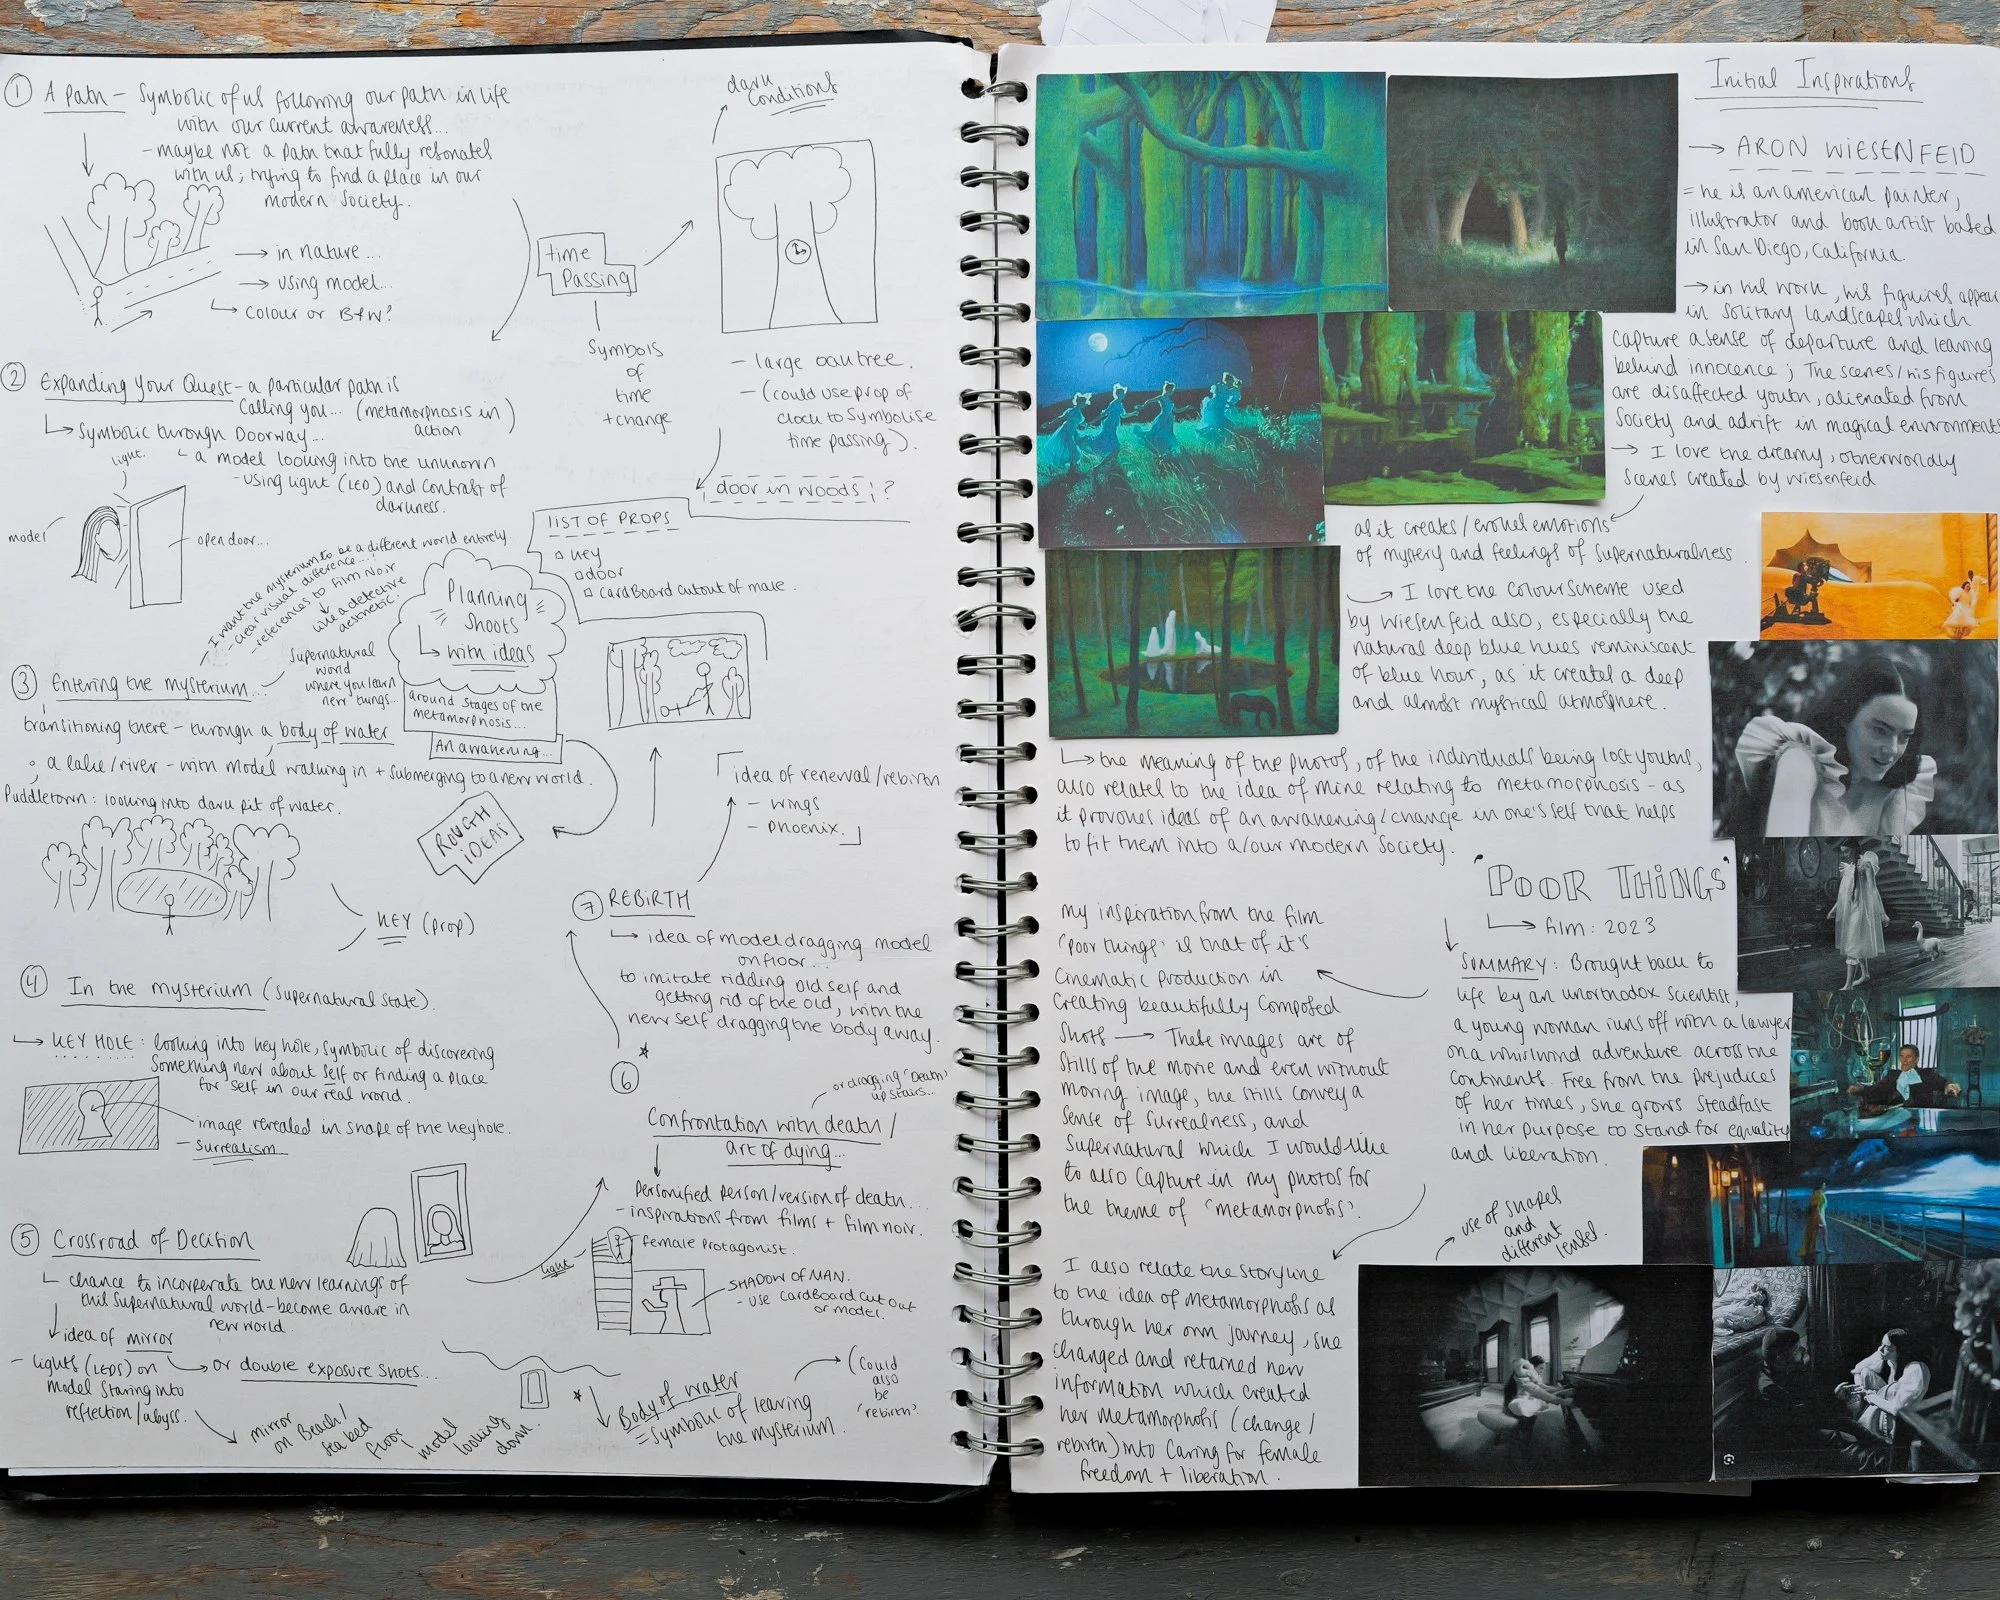 ① A Path – Symbolic of us following our path in life
with our current awareness...
- maybe not a path that fully resonates
with us; trying to find a place in our
modern Society.
→ in nature...
→ using model...
↳ colour or B+W?
time
Passing
Symbols
of
time
+ change
dark
Conditions
- large oak tree.
- (could use prop of
clock to Symbolise
time passing).
door in woods ;?
② Expanding Your Quest – a particular path is
calling you... (metamorphosis in
action)
↳ Symbolic through Doorway...
a model looking into the unknown
- using light (LED) and contrast of
darkness.
light.
model
open door...
LIST OF PROPS
□ key
□ door
□ cardboard cutout of male.
Planning
Shoots
↳ with ideas
around stages of the
metamorphosis...
An awakening...
ROUGH
IDEAS
- I want the mysterium to be a different world entirely.
- clear visual difference...
- references to film noir
like a detective
aesthetic.
③ Entering the mysterium...
Supernatural
world
where you learn
new things...
transitioning there – through a body of water
a lake/river – with model walking in + submerging to a new world.
Puddletown: looking into dark pit of water.
KEY (prop)
④ In the mysterium (supernatural state).
↳ KEY HOLE: looking into key hole, symbolic of discovering
something new about self or finding a place
for self in our real world.
image revealed in shape of the keyhole.
- Surrealism
⑤ Crossroad of Decision
chance to incorperate the new learnings of
this supernatural world – become aware in
new world.
idea of mirror
- lights (LEDs) on
model staring into
reflection/abyss.
→ or double exposure shots...
mirror
on Beach/
sea bed
floor
model
looking
down.
idea of renewal/rebirth
- wings
- Phoenix.
⑦ REBIRTH
↳ idea of model dragging model
on floor...
to imitate ridding old self and
getting rid of the old, with the
new self dragging the body away.
⑥
or dragging 'Death'
up stairs...
Confrontation with death/
art of dying...
Personified person/version of death...
- inspirations from films + film noir.
female protagonist.
light
SHADOW OF MAN.
- use cardboard cut out
or model.
Body of water
= Symbolic of leaving
the mysterium.
(could
also
be
'rebirth'.
Initial Inspirations
→ ARON WIESENFEID
= he is an american painter,
illustrator and book artist based
in San Diego, California.
→ in his work, his figures appear
in solitary landscapes which
capture a sense of departure and leaving
behind innocence; The scenes/his figures
are disaffected youth, alienated from
society and adrift in magical environments
→ I love the dreamy, otherworldly
scenes created by wiesenfeid
as it creates/evokes emotions
of mystery and feelings of supernaturalness.
→ I love the colour scheme used
by wiesenfeid also, especially the
natural deep blue hues reminiscent
of blue hour, as it created a deep
and almost mystical atmosphere.
↳ the meaning of the photos, of the individuals being lost youths,
also relates to the idea of mine relating to metamorphosis – as
it provokes ideas of an awakening/change in one's self that helps
to fit them into a/our modern society.
'POOR THINGS'
↳ film: 2023
SUMMARY: Brought back to
life by an unorthodox scientist,
a young woman runs off with a lawyer
on a whirlwind adventure across the
continents. Free from the prejudices
of her times, she grows steadfast
in her purpose to stand for equality
and liberation.
my inspiration from the film
'poor things' is that of it's
cinematic production in
creating beautifully composed
shots → These images are of
stills of the movie and even without
moving image, the stills convey a
sense of surrealness, and
supernatural which I would like
to also capture in my photos for
the theme of 'metamorphosis'.
→ use of shapes
and
different
lenses.
I also relate the storyline
to the idea of metamorphosis as
through her own journey, she
changed and retained new
information which created
her metamorphosis (change/
rebirth) into caring for female
freedom + liberation.